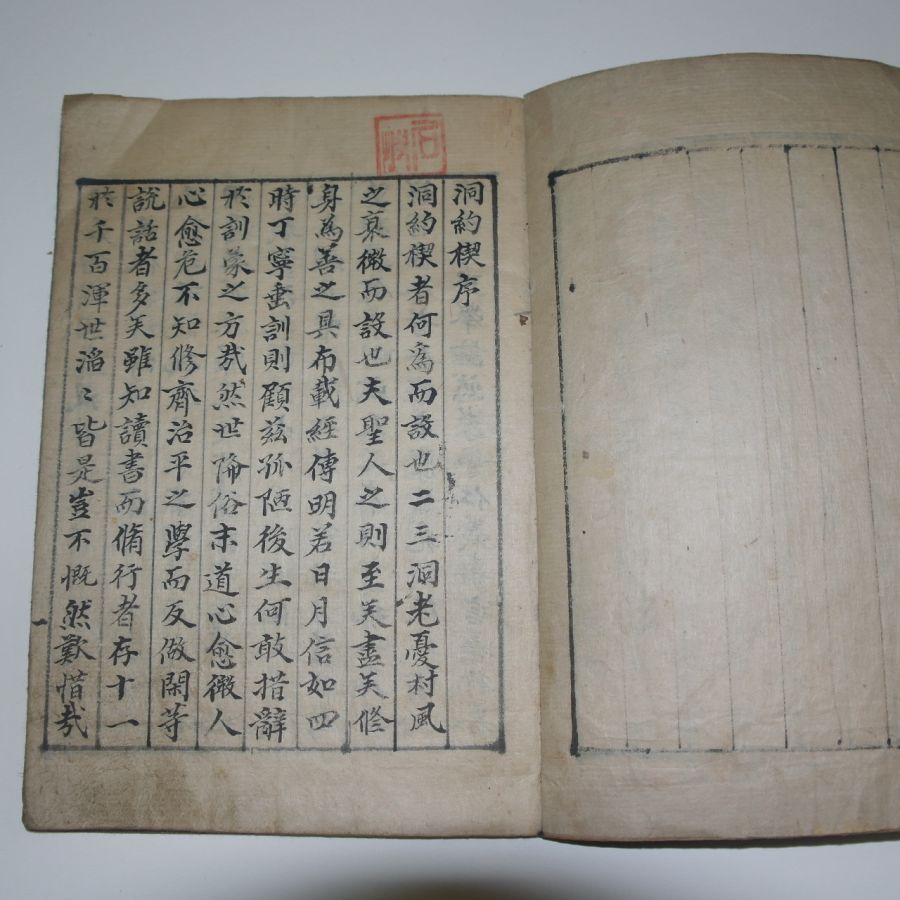 洞約楔序
洞約楔者何爲而設也二三洞老憂村風
之衰微而設也夫聖人之則至矣盡矣修
身為善之具布載經傳明若日月信如四
時丁寧垂訓則顧玆孤陋後生何敢措辭
於訓蒙之方哉然世降俗末道心愈微人
心愈危不知修齊治平之學而反做閑等
說話者多矣雖知讀書而脩行者存十一
於千百渾世滔〻皆是豈不慨然歎惜哉